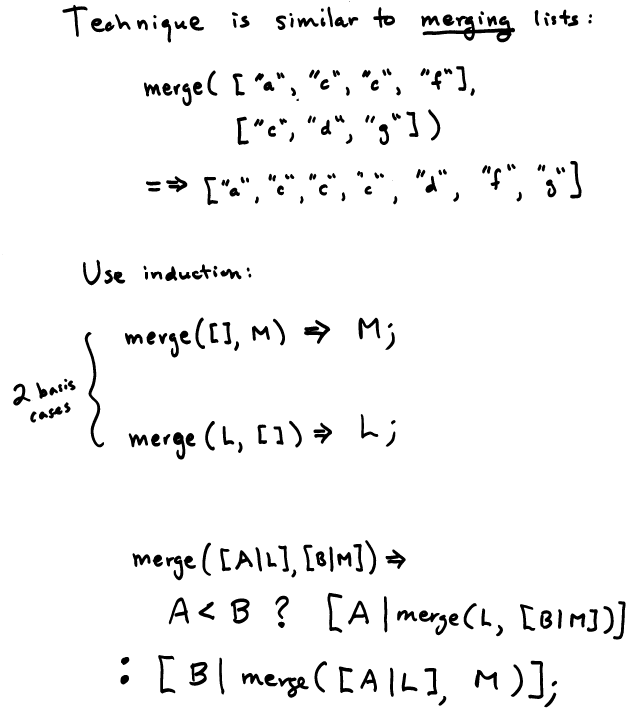 Technique is similar to merging lists:
merge( [ "a", "c", "c", "f"],
["c", "d", "g"] )
==> ["a", "c", "c", "c", "d", "f", "g"]
Use induction:
merge([], M) => M;
2 basis
cases
merge (L, []) => L;
merge([A|L], [B|M]) =>
A < B ? [A|merge(L, [B|M])]
: [B| merge([A|L], M)];